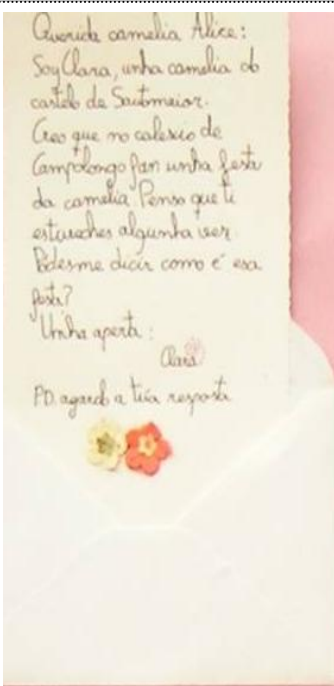 Querida camelia Alice:
Soy Clara, unha camelia do
castelo de Soutomaior.
Creo que no colexio de
Campolongo fan unha festa
da camelia. Penso que ti
estiveches algunha vez.
Pódesme dicir como é esa
festa?
Unha aperta:
Clara
PD. agardo a túa resposta